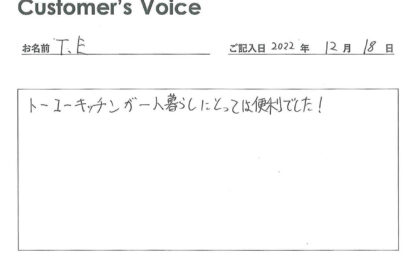 Customer's Voice
お名前 T.E ご記入日 2022 年 12 月 18 日
トーユーキッチンが一人暮らしにとっては便利でした！